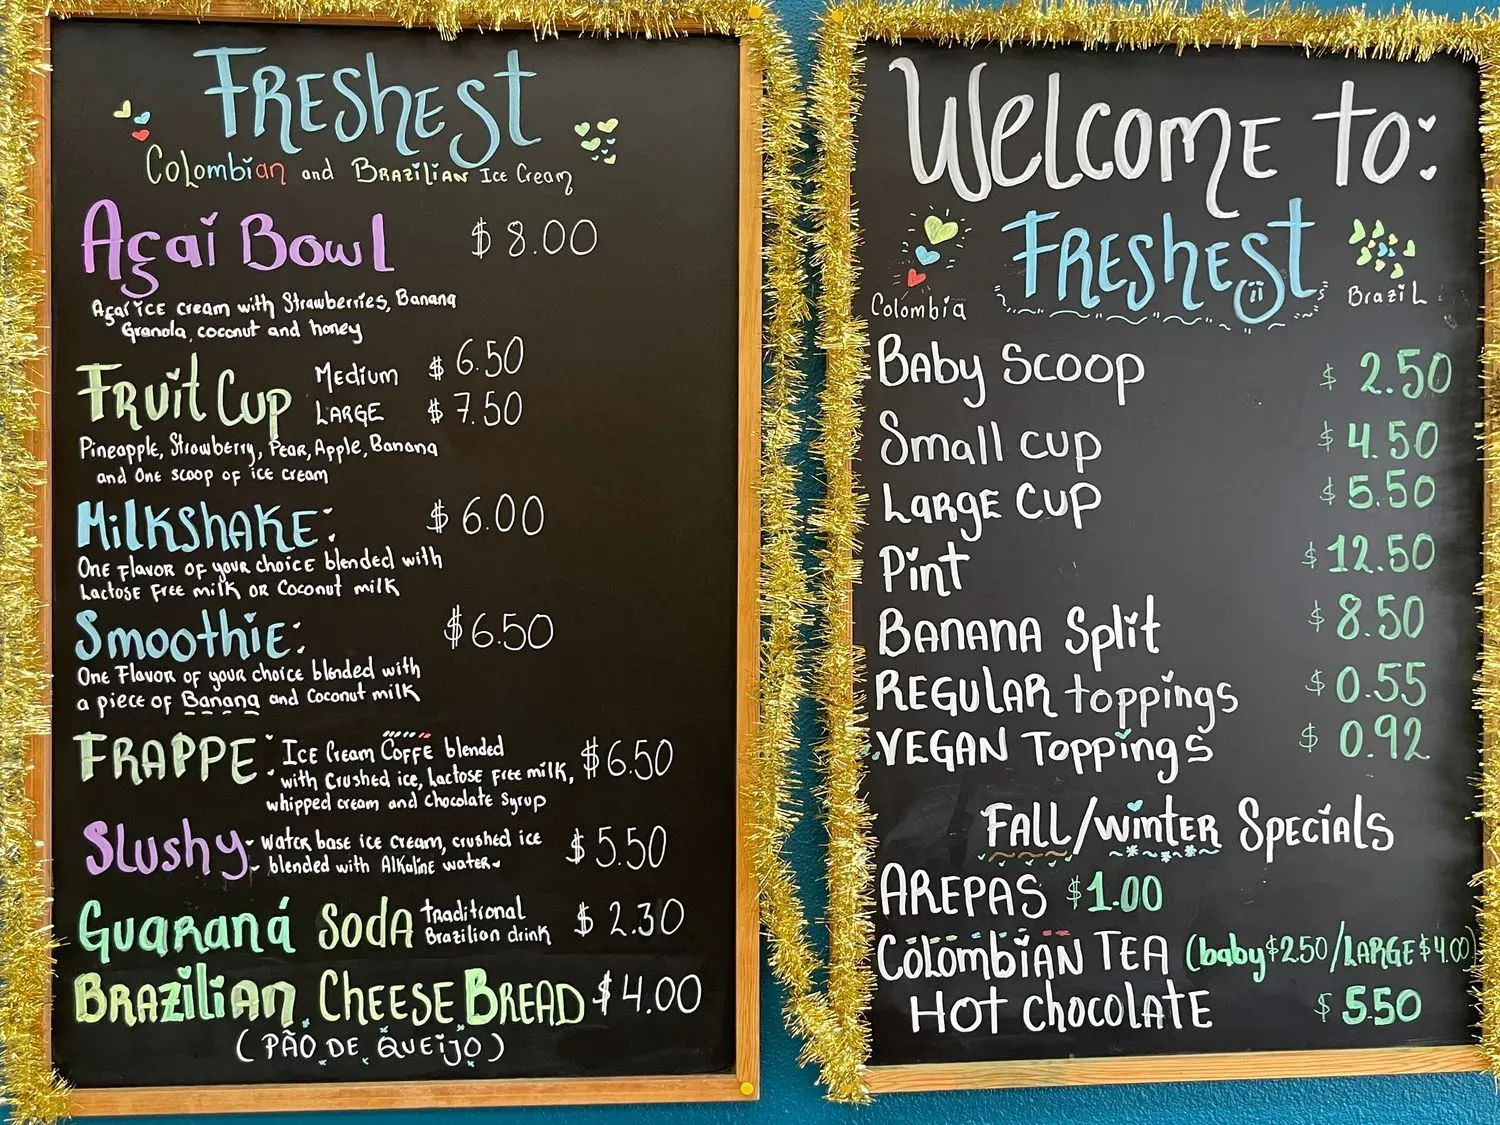 FRESHEST
Colombian and BRAZILIAN Ice Cream
Açaí Bowl $ 8.00
Açaí ICE cream with Strawberries, Banana
Granola, coconut and honey
FRUIT CUP MEDIUM $ 6.50
LARGE $ 7.50
Pineapple, Strowberry, Pear, Apple, Banana
and One scoop of ice cream
MILKSHAKE: $ 6.00
ONE FLAVOR OF your choice blended with
Lactose Free milk OR Coconut milk
Smoothie: $6.50
ONE Flavor of your choice blended with
a piece of Banana and Coconut milk
FRAPPE: ICE Cream COFFE blended $6.50
with Crushed ice, Lactose Free milk,
whipped cream and chocolate syrup
Slushy - Water base ice cream, crushed ice $ 5.50
- blended with Alkaline water -
Guaraná SODA traditional $ 2.30
Brazilian drink
BRAZILIAN CHEESE BREAD $4.00
(PÃO DE QUEIJO)
Welcome to:
FRESHEST
Colombia Brazil
Baby Scoop $ 2.50
Small cup $ 4.50
Large cup $ 5.50
Pint $ 12.50
BANANA Split $ 8.50
REGULAR toppings $ 0.55
VEGAN Toppings $ 0.92
FALL/winter Specials
AREPAS $1.00
COLOMBIAN TEA (baby $2.50/LARGE $4.00)
HOT chocolate $ 5.50